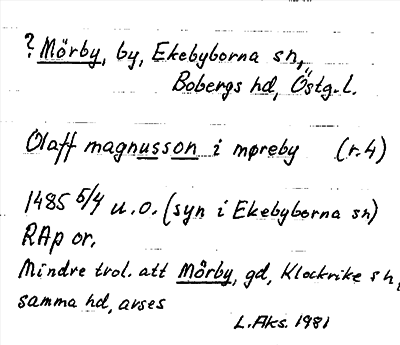 ? Mörby, by, Ekebyborna sn,
Bobergs hd, Östg.l.
Olaff magnusson i møreby (r.4)
1485 5/4 u.o. (syn i Ekebyborna sn)
RAp or.
Mindre trol. att Mörby, gd, Klockrike sn,
samma hd, avses
L.Aks. 1981